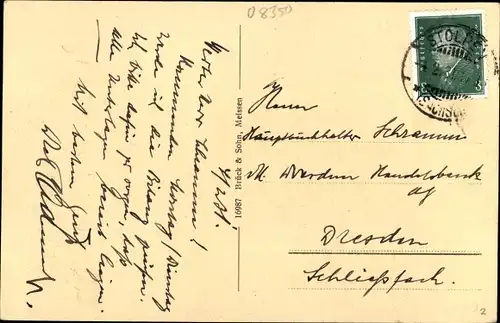 08350
4/2.31.
Mein Herr Schramm!
Kommenden Montag/Dienstag
werde ich die Bilanz prüfen.
Ich bitte dafür zu sorgen, daß
alle Unterlagen bereit liegen.
Mit bestem Gruß
16987 Brück & Sohn, Meissen
STOLPEN
Herrn
Hauptbuchhalter Schramm
Handelsbank
AG
Dresden
Schließfach.
2